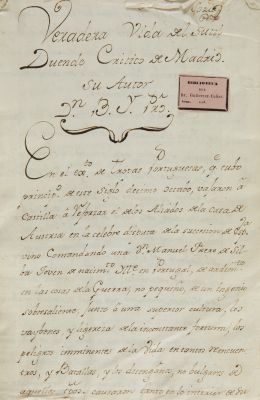 Verdadera Vida del Sutil
Duende Critico de Madrid.
su Autor
Dn. B. Y. Ro.
BIBLIOTECA
DEL
Dr. Gutierrez-Cañas
En el de tropas portuguesas q. hubo
princip. de este siglo decimo octavo, bajaron á
Castilla á reforzar el de los Aliados de la Casa de
Austria en la celebre disputa de la sucesion, de
vino Comandando una Dn. Manuel Freire de Sil-
ba Joven de nacimto. Illte. en Portugal, de
en las cosas de la Guerra, no pequeño, de un ingenio
sobresaliente, junto á una superior cultura, los
vayvenes y ligereza de la inconstante fortuna, los
peligros imminentes de la Vida en tantos de encuen-
tros, y Batallas, y los Desengaños, no bulgares de
aquellos causaron tanto en lo interior de